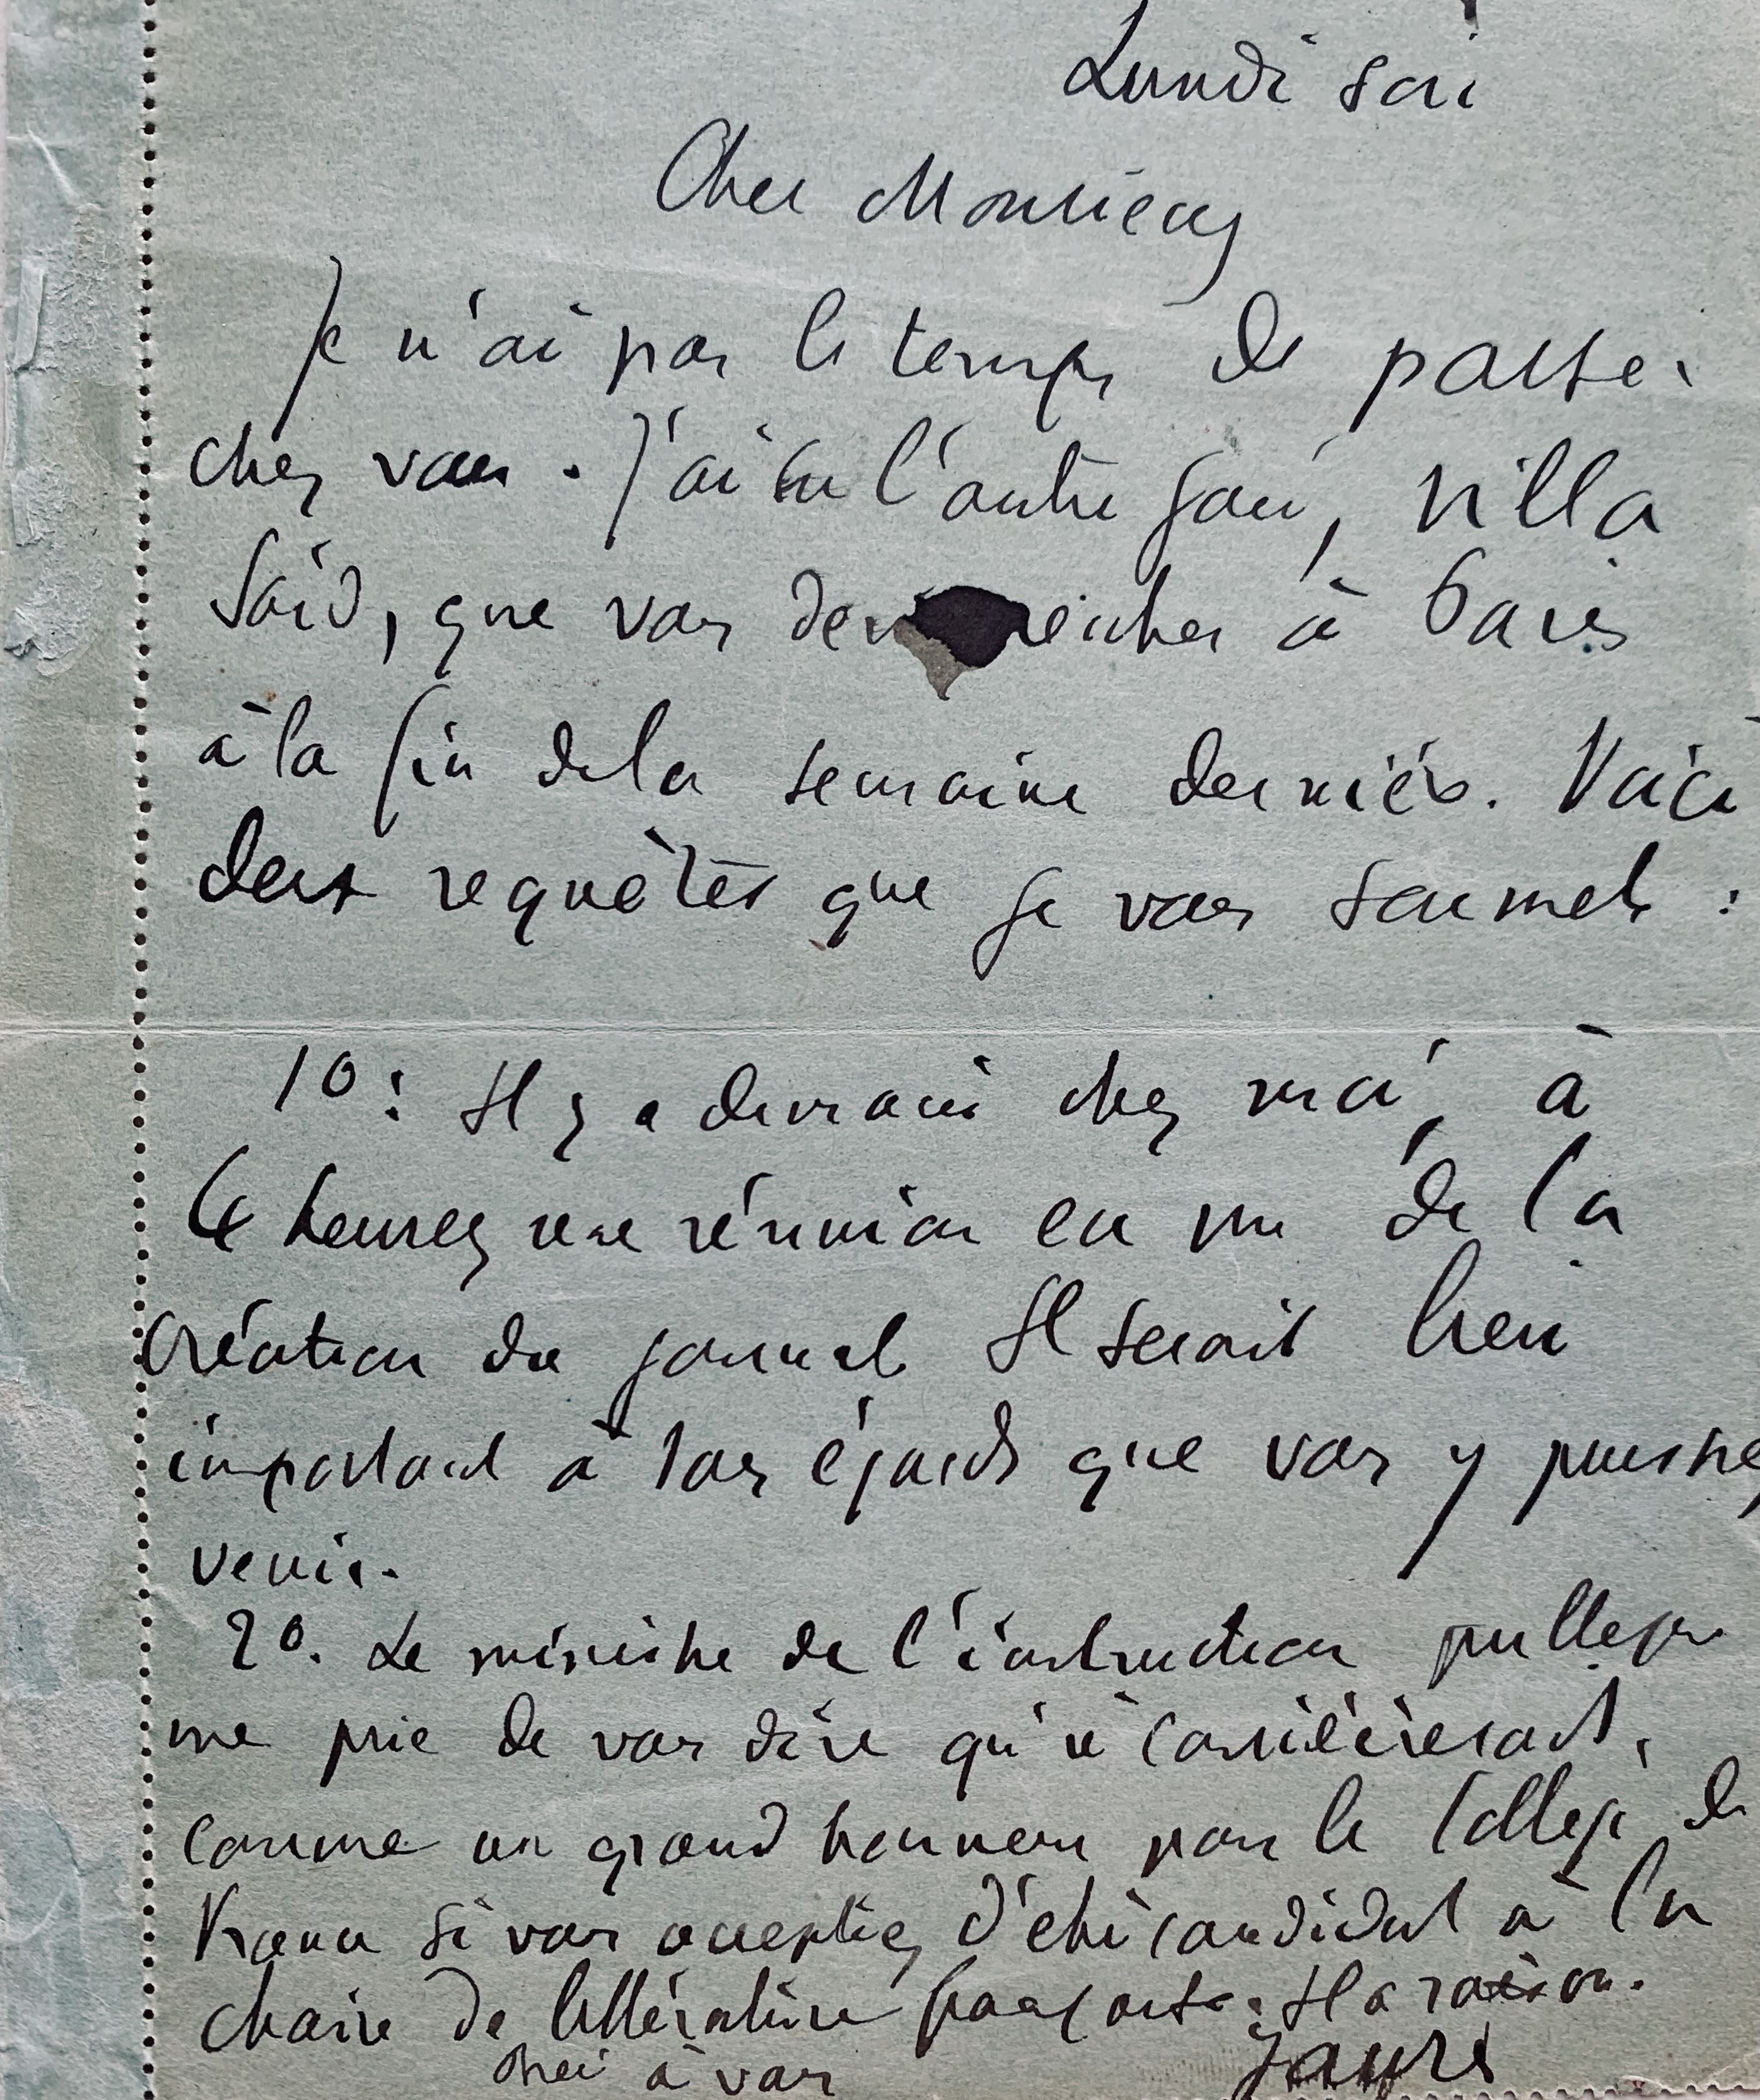 Lundi soir
Cher Monsieur
Je n'ai pas le temps de passer
chez vous. J'ai su l'autre jour, villa
Saïd, que vous deviez rentrer à Paris
à la fin de la semaine dernière. Voici
deux requêtes que je vous soumets :
1o : Il y a demain chez moi, à
4 heures une réunion en vue de la
création du journal Il serait bien
important à tous égards que vous y puissiez
venir.
2o. Le ministre de l'instruction publique
me prie de vous dire qu'il considérerait,
comme un grand honneur pour le Collège de
France si vous acceptiez d'être candidat à la
chaire de littérature française. Il a raison.
à vous
Jaurès